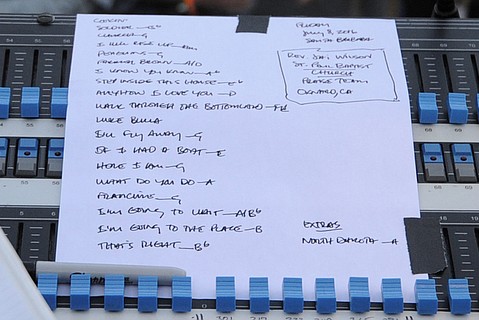 SOLDIER — G
I WILL RISE UP — Am
PENGUINS — G
FARTHER DOWN — A/D
I KNOW YOU KNOW — A
STEP INSIDE THIS HOUSE — G
ANYHOW I LOVE YOU — D
WALK THROUGH THE BOTTOMLAND — F#
LUKE BULLA
I'LL FLY AWAY — G
IF I HAD A BOAT — E
HERE I AM — G
WHAT DO YOU DO — A
FRANCINE — G
I'M GOING TO WAIT — A/Bb
I'M GOING TO THE PLACE — B
THAT'S RIGHT — Bb
July 8, 2016
SANTA BARBARA
REV. DAN WILSON
ST. PAUL BAPTIST
CHURCH
PRAISE TEAM
OXNARD, CA
EXTRAS
NORTH DAKOTA — A